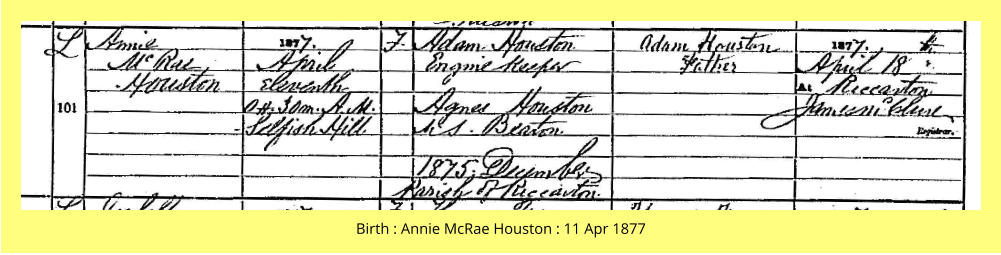 L Annie 1877. F. Adam Houston Adam Houston 1877.
McRae April Engine Keeper Father April 18
Houston Eleventh At Riccarton
101 0H. 30m. A.M. Agnes Houston James McClure
Selfish Hill M.S. Beaton Registrar.
1875, December
Parish of Riccarton
Birth : Annie McRae Houston : 11 Apr 1877